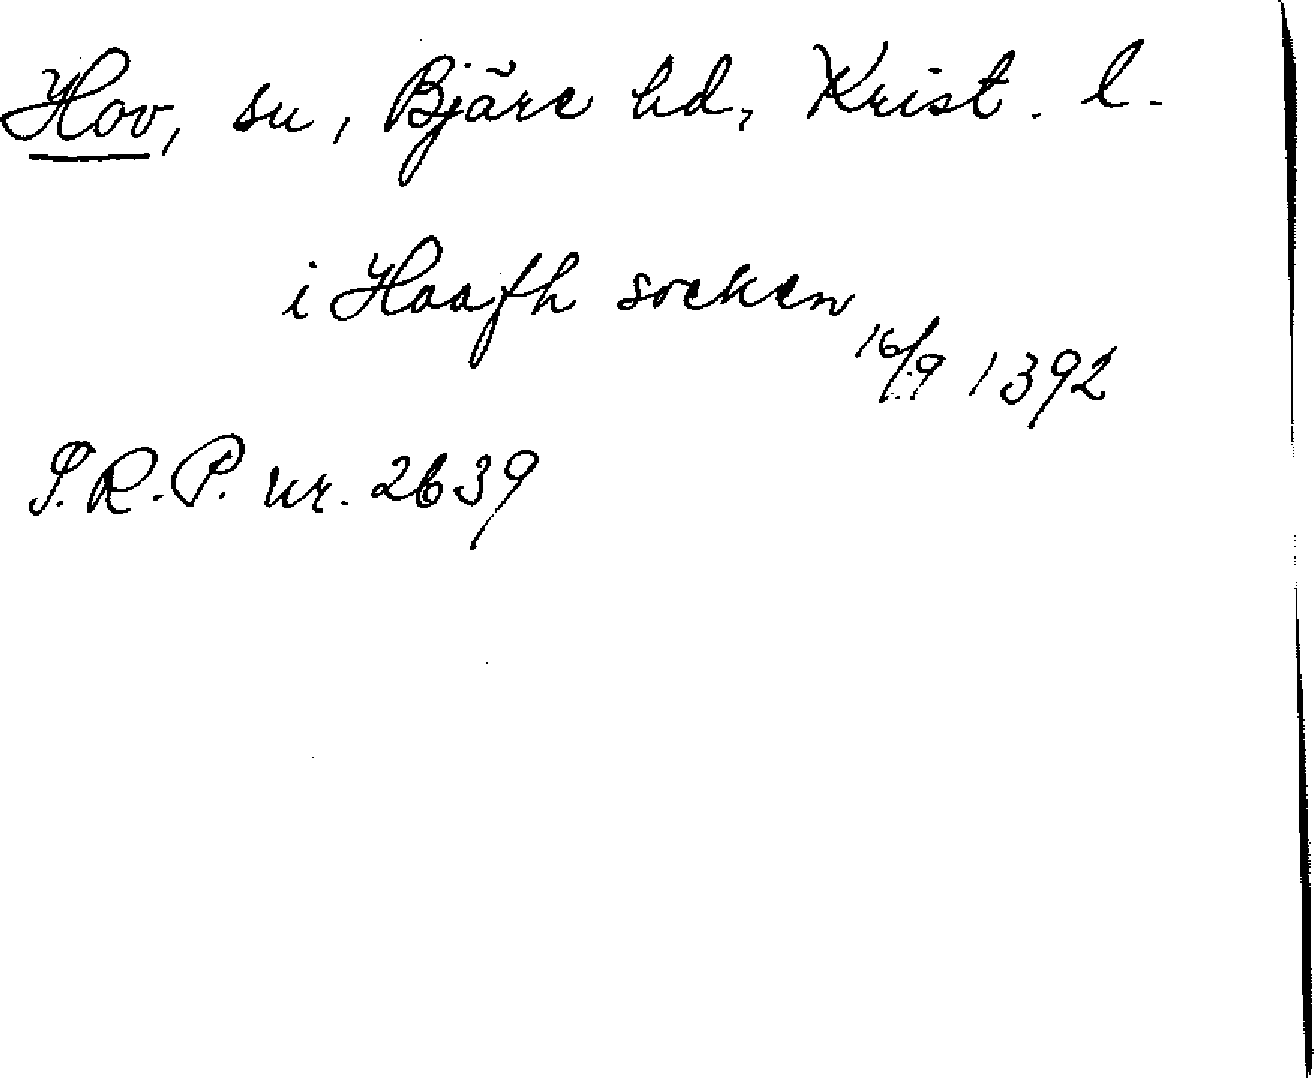 Hov, sn, Bjäre hd, Krist. l.
i Haafh socken
16/9 1392
S.R.P. nr. 2639